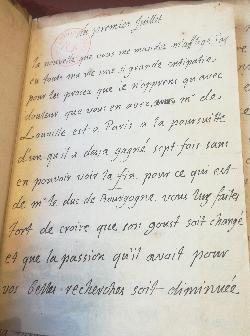 du premier Juillet
la nouvelle que vous me mandez m'afflige j'ay
en toute une si grande antipatie
pour les procez que je n'aprens qu'avec
douleur que vous en avez, mr de
Lauville est a Paris a la poursuitte
d'un qu'il a deja gagné sept fois sans
en pouvoir voir la fin. pour ce qui est
de mr le duc de Bourgogne, vous luy faites
tort de croire que son goust soit changé
et que la passion qu'il avoit pour
vos belles recherches soit diminuée